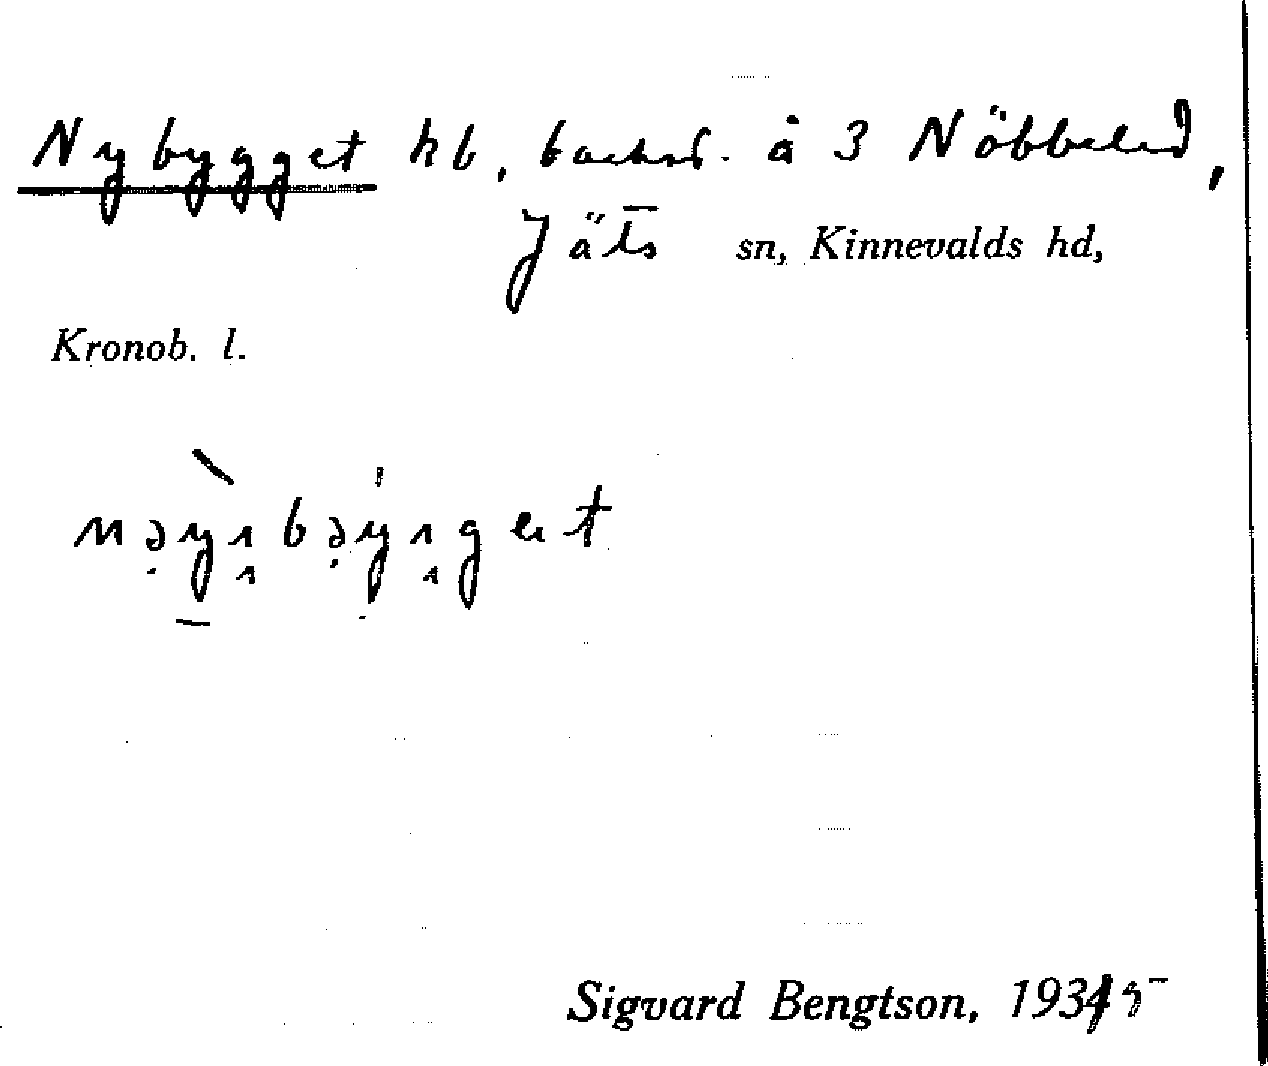 Nybygget hb, backst. å 3 Nöbbeled,
Jäts sn, Kinnevalds hd,
Kronob. l.
Sigvard Bengtson, 1935